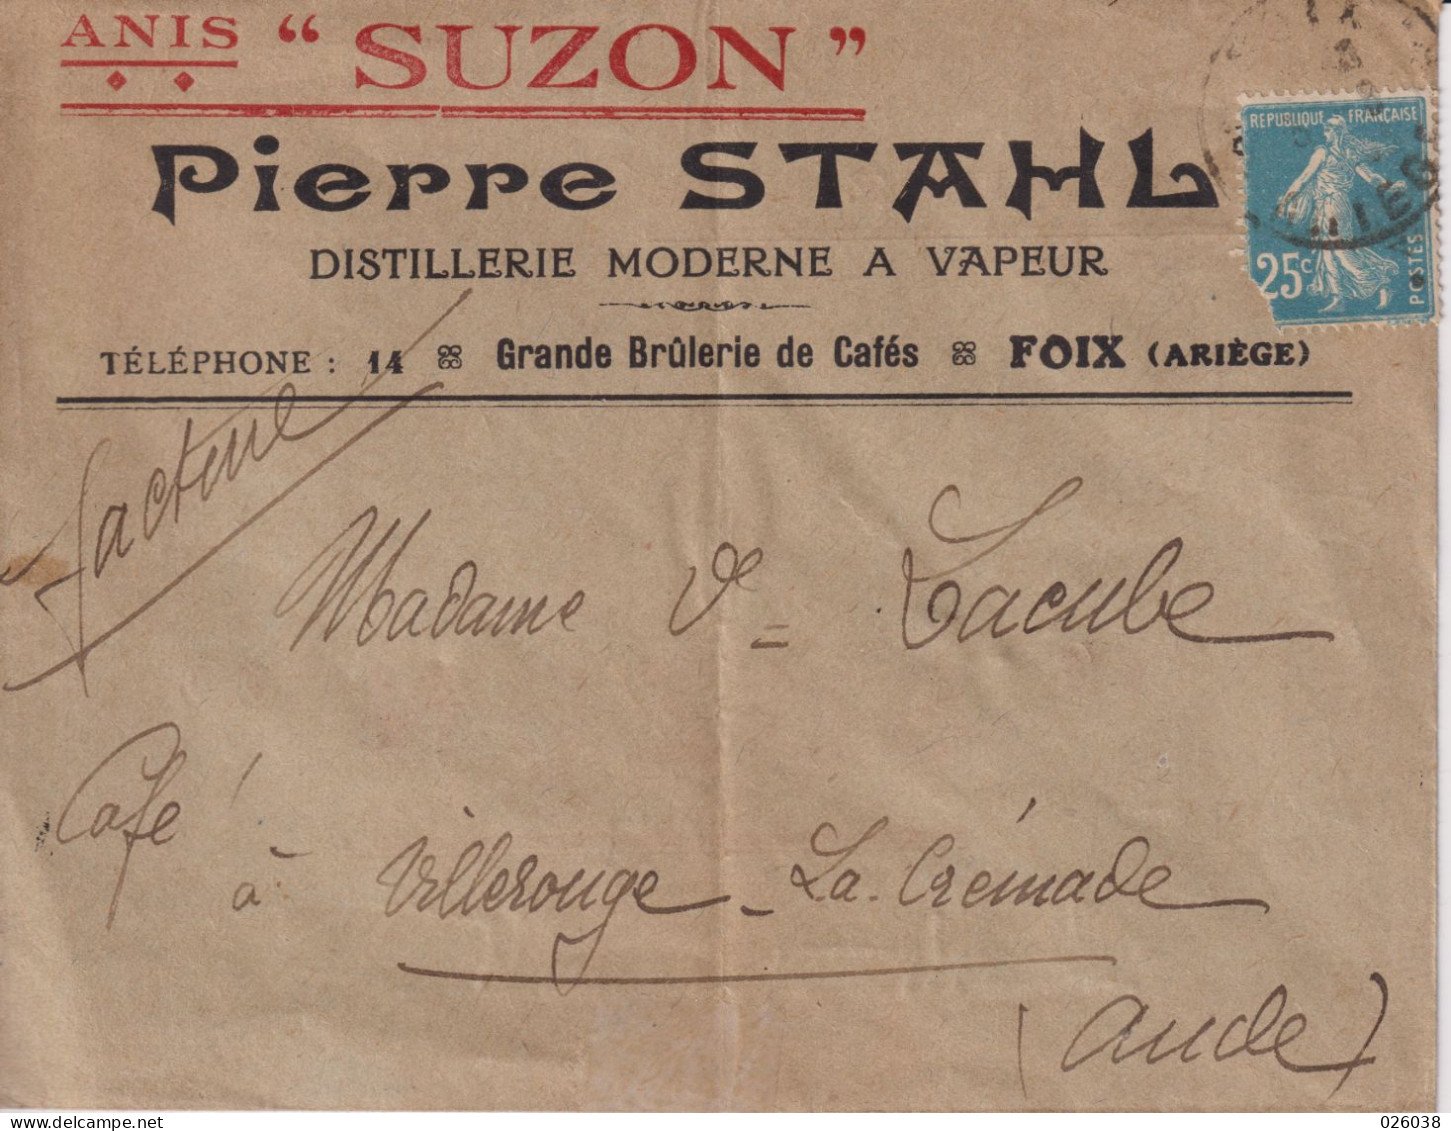 ANIS " SUZON "
Pierre STAHL
DISTILLERIE MODERNE A VAPEUR
TÉLÉPHONE : 14 Grande Brûlerie de Cafés FOIX (ARIÈGE)
REPUBLIQUE FRANÇAISE
25c
POSTES
Facture
Madame Ve Lacube
Café
à Villerouge - La Crémade
(Aude)
www.delcampe.net
026038